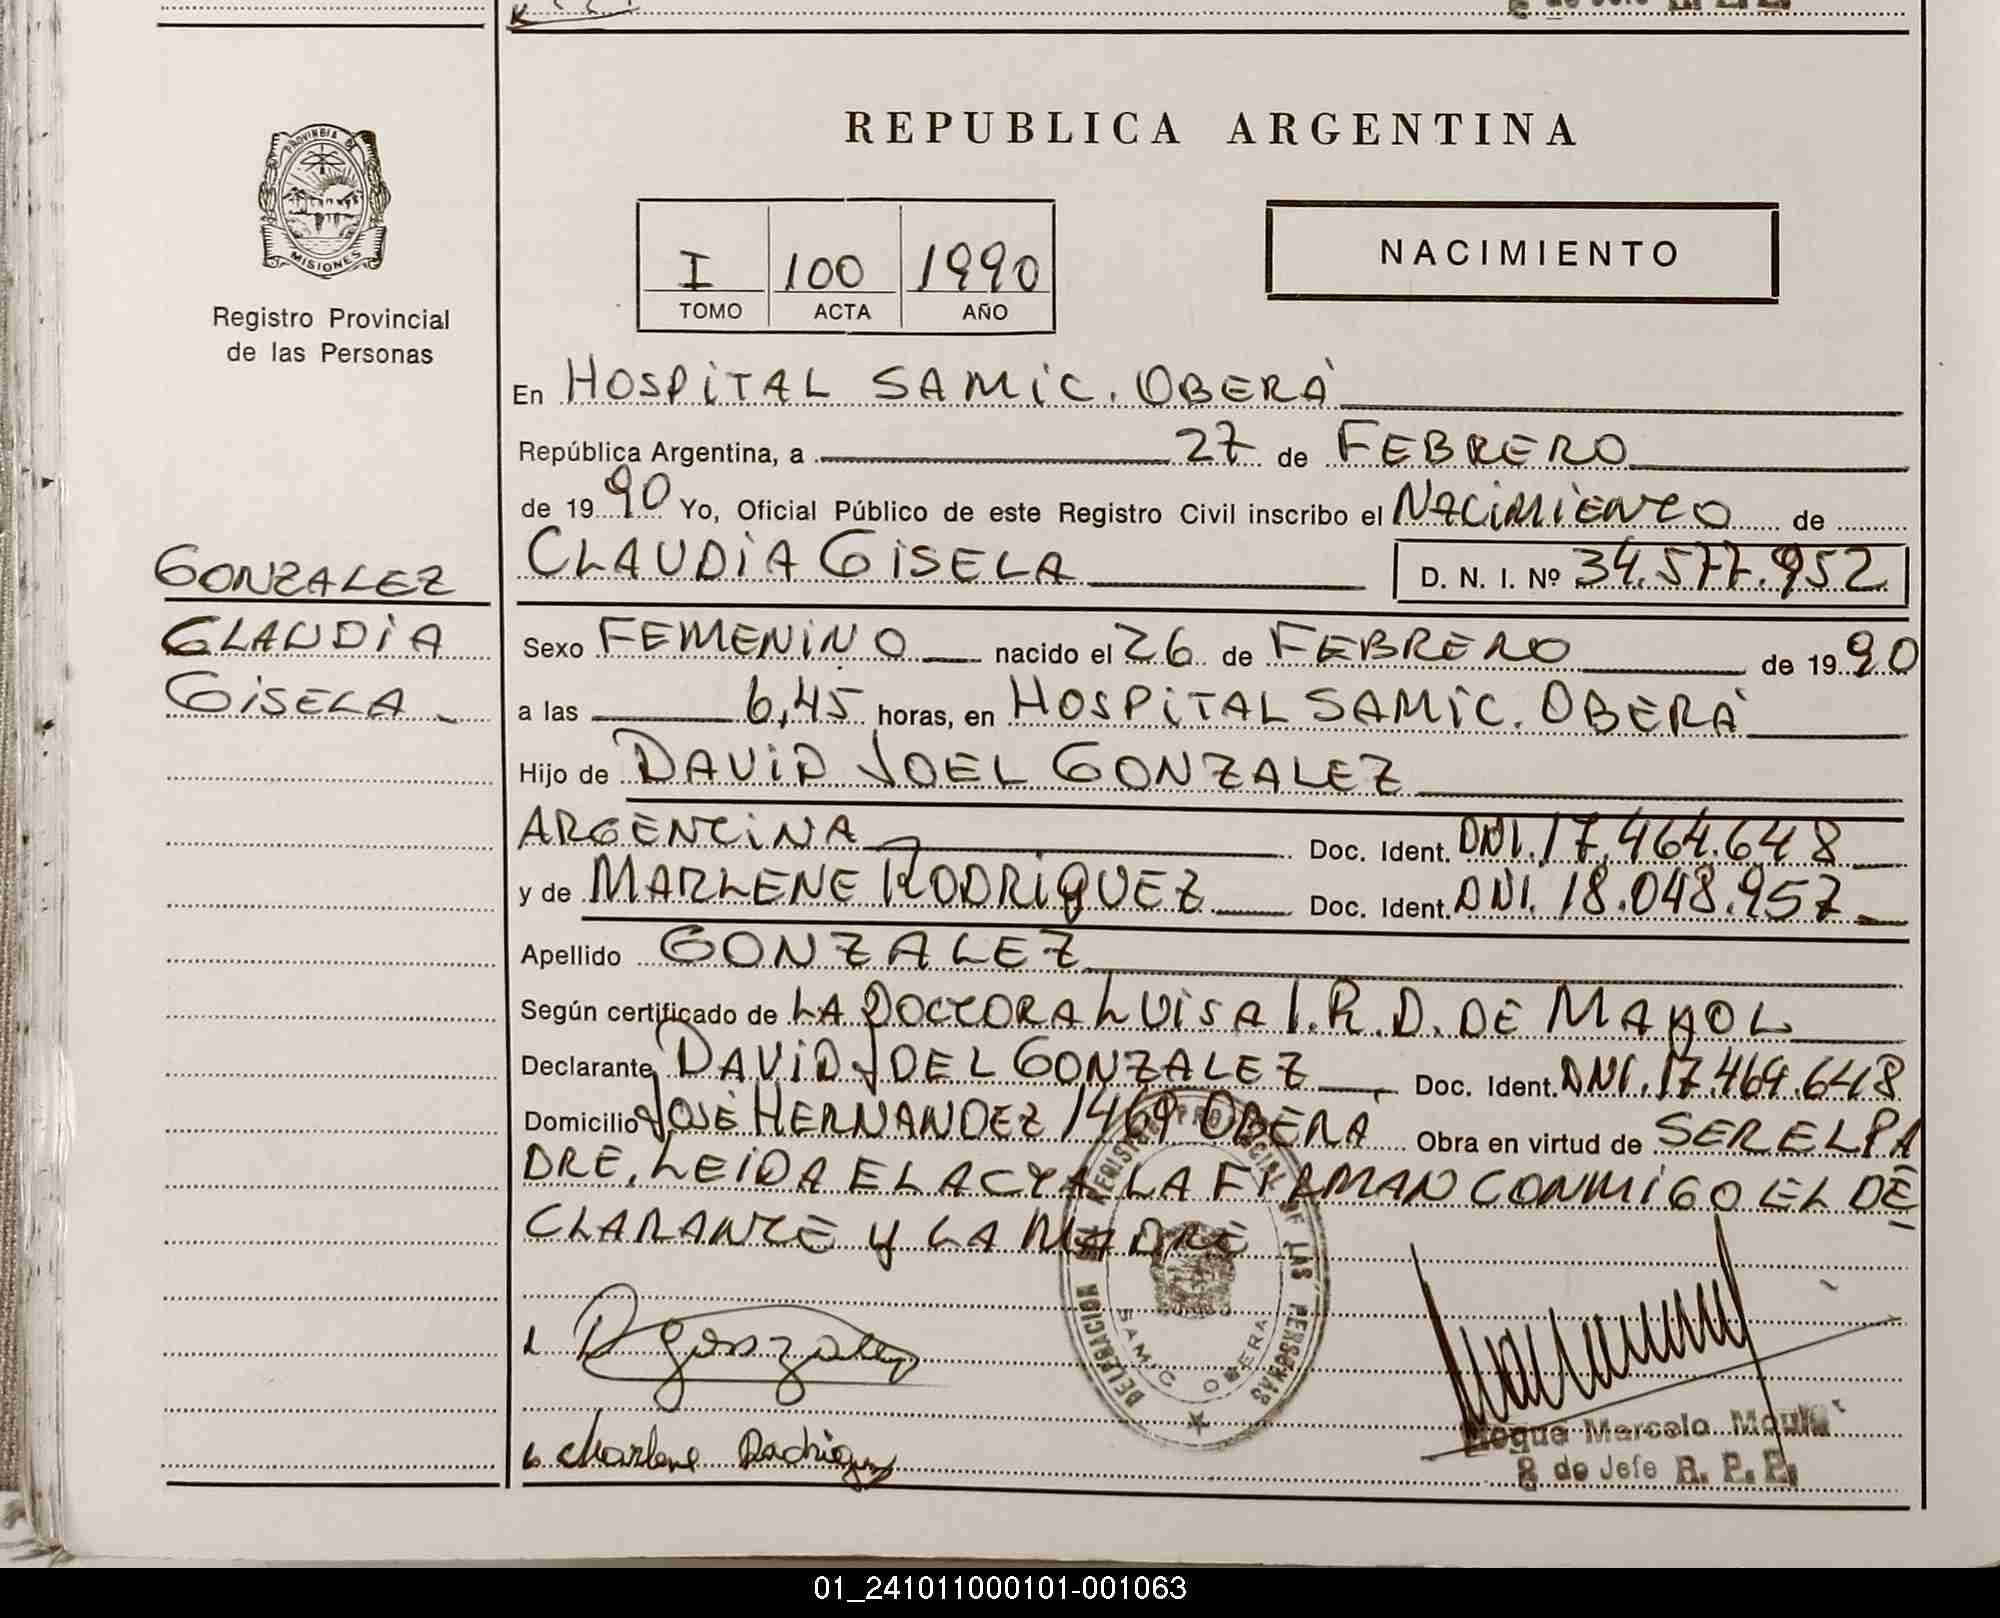 REPUBLICA ARGENTINA
PROVINCIA DE
MISIONES
Registro Provincial
de las Personas
I 100 1990
TOMO ACTA AÑO
NACIMIENTO
En HOSPITAL SAMIC. OBERÁ
República Argentina, a 27 de FEBRERO
de 1990 Yo, Oficial Público de este Registro Civil inscribo el NACIMIENTO de
CLAUDIA GISELA D. N. I. Nº 34.577.952
GONZALEZ
CLAUDIA
GISELA
Sexo FEMENINO nacido el 26 de FEBRERO de 1990
a las 6,45 horas, en HOSPITAL SAMIC. OBERÁ
Hijo de DAVID JOEL GONZALEZ
ARGENTINA Doc. Ident. DNI. 17.464.648
y de MARLENE RODRIGUEZ Doc. Ident. DNI. 18.048.957
Apellido GONZALEZ
Según certificado de LA DOCTORA LUISA I. R. D. DE MAYOL
Declarante DAVID JOEL GONZALEZ Doc. Ident. DNI. 17.464.648
Domicilio JOSÉ HERNANDEZ 1469 OBERÁ Obra en virtud de SER EL PA
DRE. LEIDA EL ACTA LA FIRMAN CONMIGO EL DE
CLARANTE Y LA MADRE
D Gonzalez
Marlene Rodriguez
DELEGACION REGISTRO PROVINCIAL DE LAS PERSONAS
SAMIC OBERA
Roque Marcelo
2 de Jefe R. P. P.
01_241011000101-001063